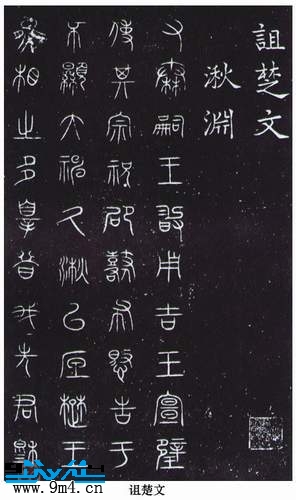 詛楚文
湫淵
又秦嗣王敢用吉玉宣璧
使其宗祝邵鼛布愍告于
不顯大神久湫以底楚王
熊相之多辠昔我先君穆
www.9m4.cn
诅楚文